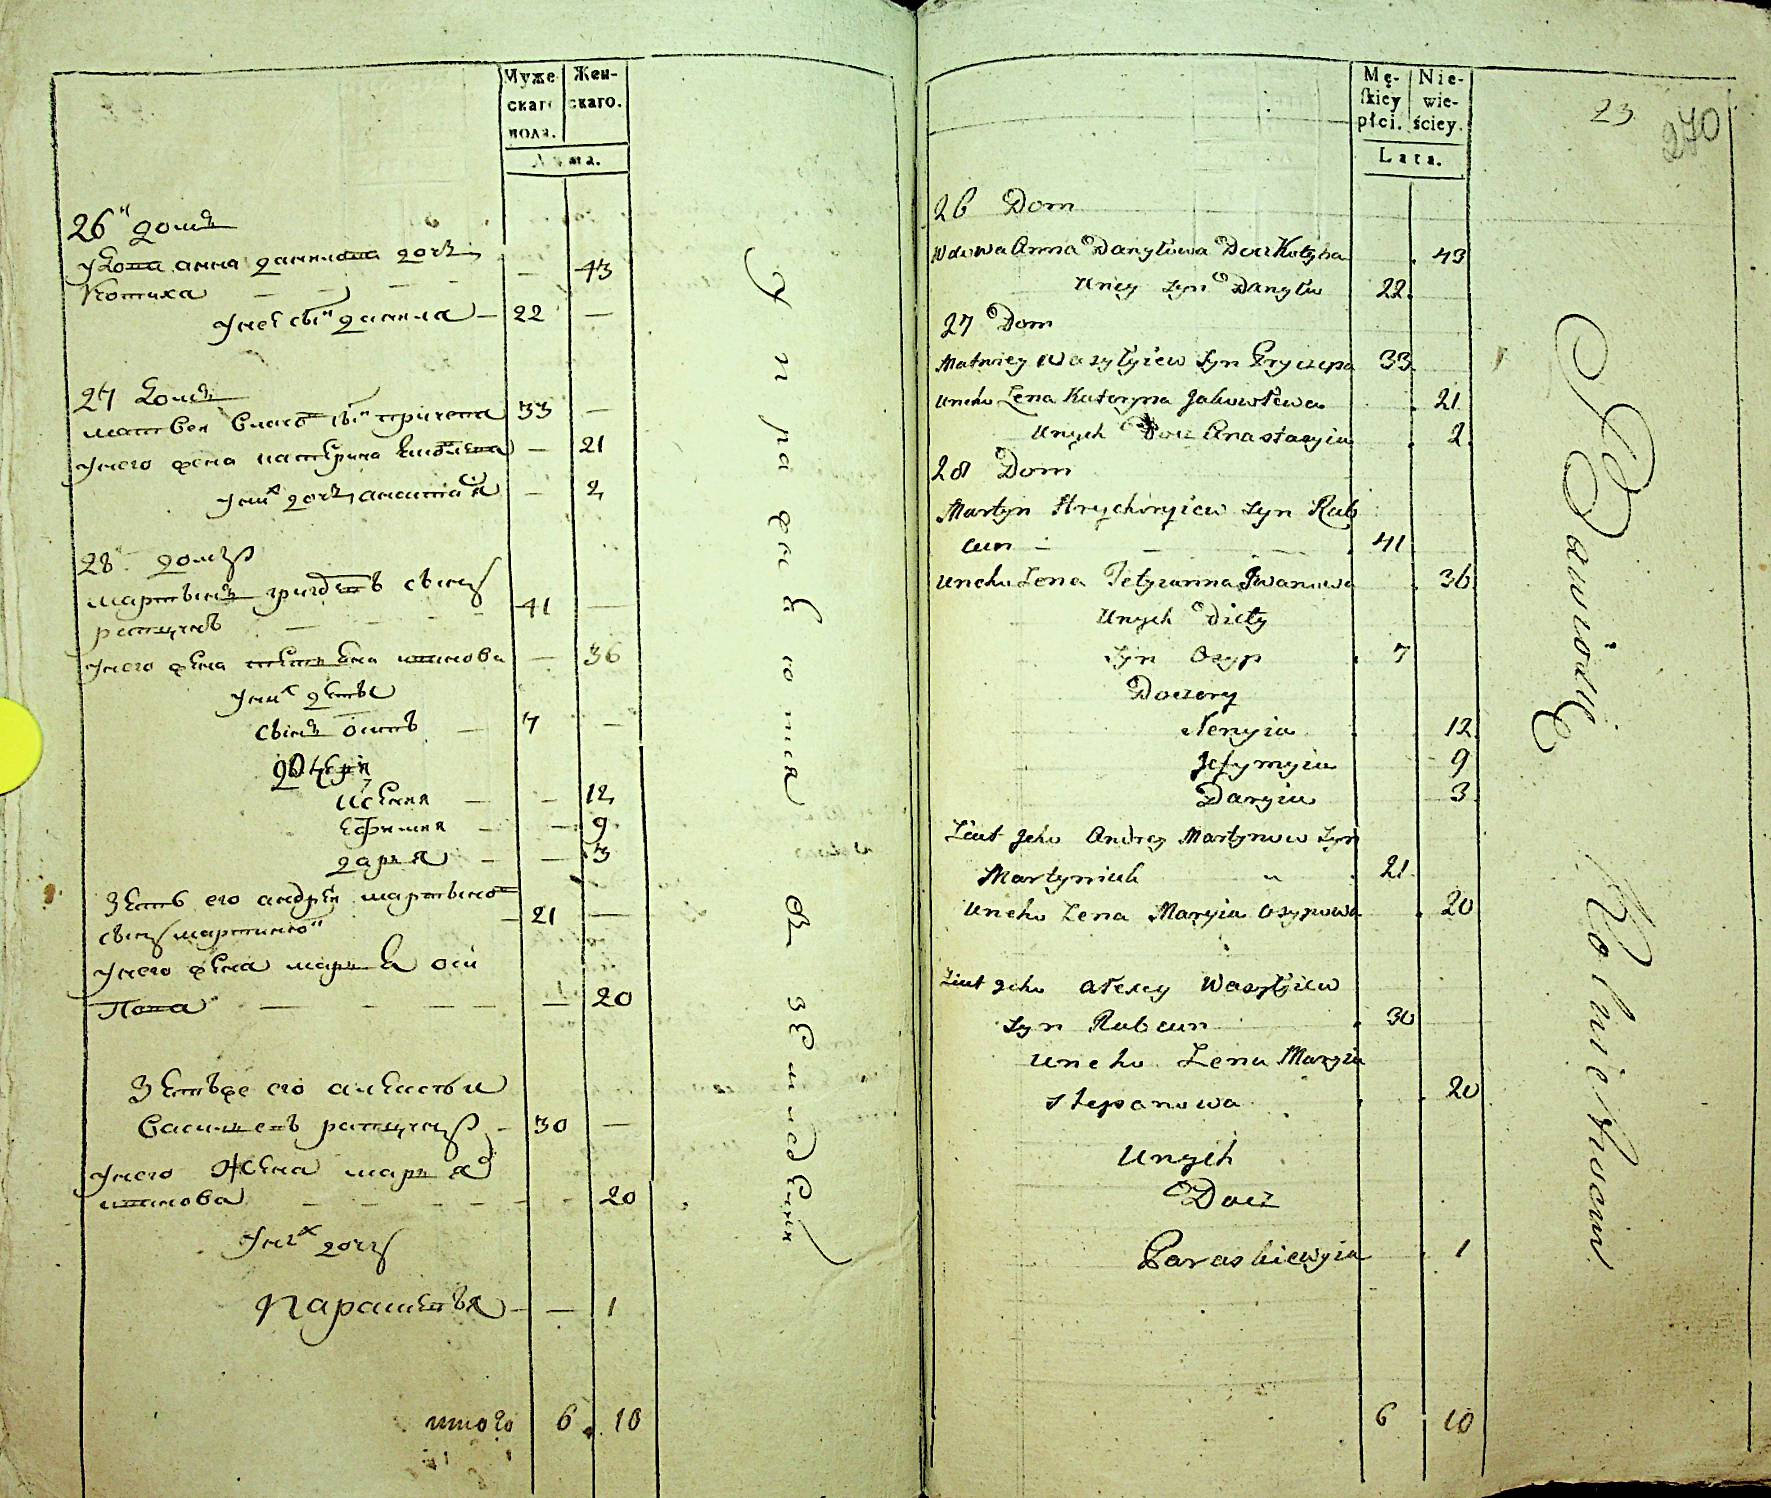 Муже
скаго
пола.
Жен-
скаго.
Лѣта.
26 домъ
Удова анна данилова дочъ
Котиха — — — — 43
Унеі сын данила — 22 —
27 домъ
матвеи василев сын причепа 33 —
Унего жена катерина — 21
Уних дочъ анастасия — 2
28 домъ
мартынъ григоревъ сынъ
рапцунъ — — 41 —
Унего жена иванова — 36
Уних дети
сынъ осипъ — 7 —
дочери
ксения — — 12
ефимия — — 9
дарья — — 3
Зеть его андреи мартынов
сынъ мартинюк — 21 —
Унего жена марья оси
пова — — — — 20
Зетьже его алексеи
Василевъ рапцунъ — 30 —
Унего жена марья
— — — — 20
Уних дочъ
Парасковья — — 1
итого 6. 10
Упражняются въ земледелии
Mę-
skiey
płci.
Nie-
wie-
ściey.
Lata.
23
270
26 Dom
Wdowa Anna Danyłowa Docz Kotycha . 43
Uney Syn Danyło 22.
27 Dom
Matwiey Wasylyiew Syn Pryczepa 33.
Uneho Żena Kateryna Jakowlewa . 21
Unych Docz Anastasyia . 2.
28 Dom
Martyn Hryhoryiew Syn Rab
cun - - - - . 41
Uneho Żena Tetyianna Iwanowa . 36.
Unych Diety
Syn Osyp . 7
Doczery
Xenyia . 12
Jefymyia 9
Daryia . 3.
Ziat Jeho Andrey Martynow Syn
Martyniuk " . 21.
Uneho Żena Maryia Osypowa . 20
Ziat Jeho Alexey Wasylyiew
Syn Rabcun . 30
Uneho Żena Maryia
Stepanowa . . 20
Unych
Docz
Paraskiewyia . 1
6 10
Zawiody Rolnictwem